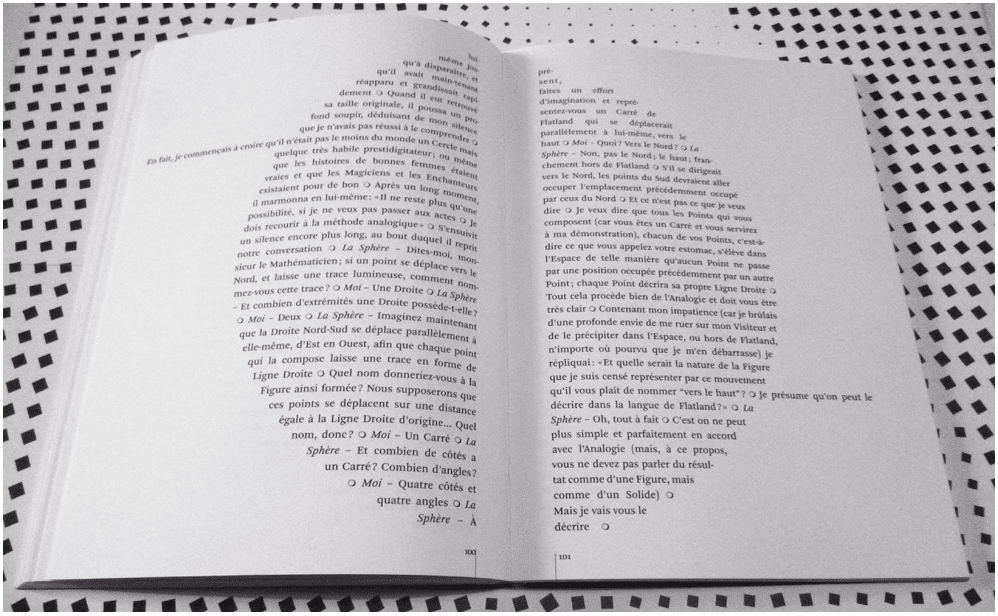 lui-
même jus-
qu'à disparaître, et
qu'il avait main-tenant
réapparu et grandissait rapi-
dement ❍ Quand il eut retrouvé
sa taille originale, il poussa un pro-
fond soupir, déduisant de mon silence
que je n'avais pas réussi à le comprendre ❍
En fait, je commençais à croire qu'il n'était pas le moins du monde un Cercle mais
quelque très habile prestidigitateur; ou même
que les histoires de bonnes femmes étaient
vraies et que les Magiciens et les Enchanteurs
existaient pour de bon ❍ Après un long moment,
il marmonna en lui-même: «Il ne reste plus qu'une
possibilité, si je ne veux pas passer aux actes ❍ Je
dois recourir à la méthode analogique» ❍ S'ensuivit
un silence encore plus long, au bout duquel il reprit
notre conversation ❍ La Sphère – Dites-moi, mon-
sieur le Mathématicien; si un point se déplace vers le
Nord, et laisse une trace lumineuse, comment nom-
mez-vous cette trace? ❍ Moi – Une Droite ❍ La Sphère
– Et combien d'extrémités une Droite possède-t-elle?
❍ Moi – Deux ❍ La Sphère – Imaginez maintenant
que la Droite Nord-Sud se déplace parallèlement à
elle-même, d'Est en Ouest, afin que chaque point
qui la compose laisse une trace en forme de
Ligne Droite ❍ Quel nom donneriez-vous à la
Figure ainsi formée? Nous supposerons que
ces points se déplacent sur une distance
égale à la Ligne Droite d'origine... Quel
nom, donc? ❍ Moi – Un Carré ❍ La
Sphère – Et combien de côtés a
un Carré? Combien d'angles?
❍ Moi – Quatre côtés et
quatre angles ❍ La
Sphère – À
100
pré-
sent,
faites un effort
d'imagination et repré-
sentez-vous un Carré de
Flatland qui se déplacerait
parallèlement à lui-même, vers le
haut ❍ Moi – Quoi? Vers le Nord? ❍ La
Sphère – Non, pas le Nord; le haut; fran-
chement hors de Flatland ❍ S'il se dirigeait
vers le Nord, les points du Sud devraient aller
occuper l'emplacement précédemment occupé
par ceux du Nord ❍ Et ce n'est pas ce que je veux
dire ❍ Je veux dire que tous les Points qui vous
composent (car vous êtes un Carré et vous servirez
à ma démonstration), chacun de vos Points, c'est-à-
dire ce que vous appelez votre estomac, s'élève dans
l'Espace de telle manière qu'aucun Point ne passe
par une position occupée précédemment par un autre
Point; chaque Point décrira sa propre Ligne Droite ❍
Tout cela procède bien de l'Analogie et doit vous être
très clair ❍ Contenant mon impatience (car je brûlais
d'une profonde envie de me ruer sur mon Visiteur et
de le précipiter dans l'Espace, ou hors de Flatland,
n'importe où pourvu que je m'en débarrasse) je
répliquai: «Et quelle serait la nature de la Figure
que je suis censé représenter par ce mouvement
qu'il vous plaît de nommer "vers le haut"? ❍ Je présume qu'on peut le
décrire dans la langue de Flatland?» ❍ La
Sphère – Oh, tout à fait ❍ C'est on ne peut
plus simple et parfaitement en accord
avec l'Analogie (mais, à ce propos,
vous ne devez pas parler du résul-
tat comme d'une Figure, mais
comme d'un Solide) ❍
Mais je vais vous le
décrire ❍
101